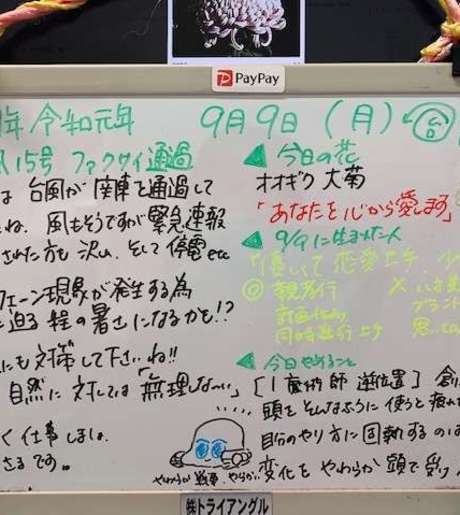 PayPay
年 令和元年 9月9日 (月)
15号 ファクサイ通過
は 台風が 関東を通過して
ね. 風もそうですが緊急速報
された方も 沢山. そして 停電etc
フェーン現象が発生する為
迫る 程の暑さになるかも!?
にも対策して下さいね!!
自然に 対しては「無理しない」
く 仕事しましょ.
さるです。
今日の花
オオギク 大菊
「あなたを心から愛します」
9/9に生まれた人
優しくて 恋愛上手. 少
◎ 親孝行
同時進行上手
今日やること
[1 魔術師 逆位置] 創
頭を そんなふうに 使うと 疲れ
自分のやり方に固執するのは
変化を やわらか 頭で 受け
やわらか 戦車. やらかい
㈱トライアングル